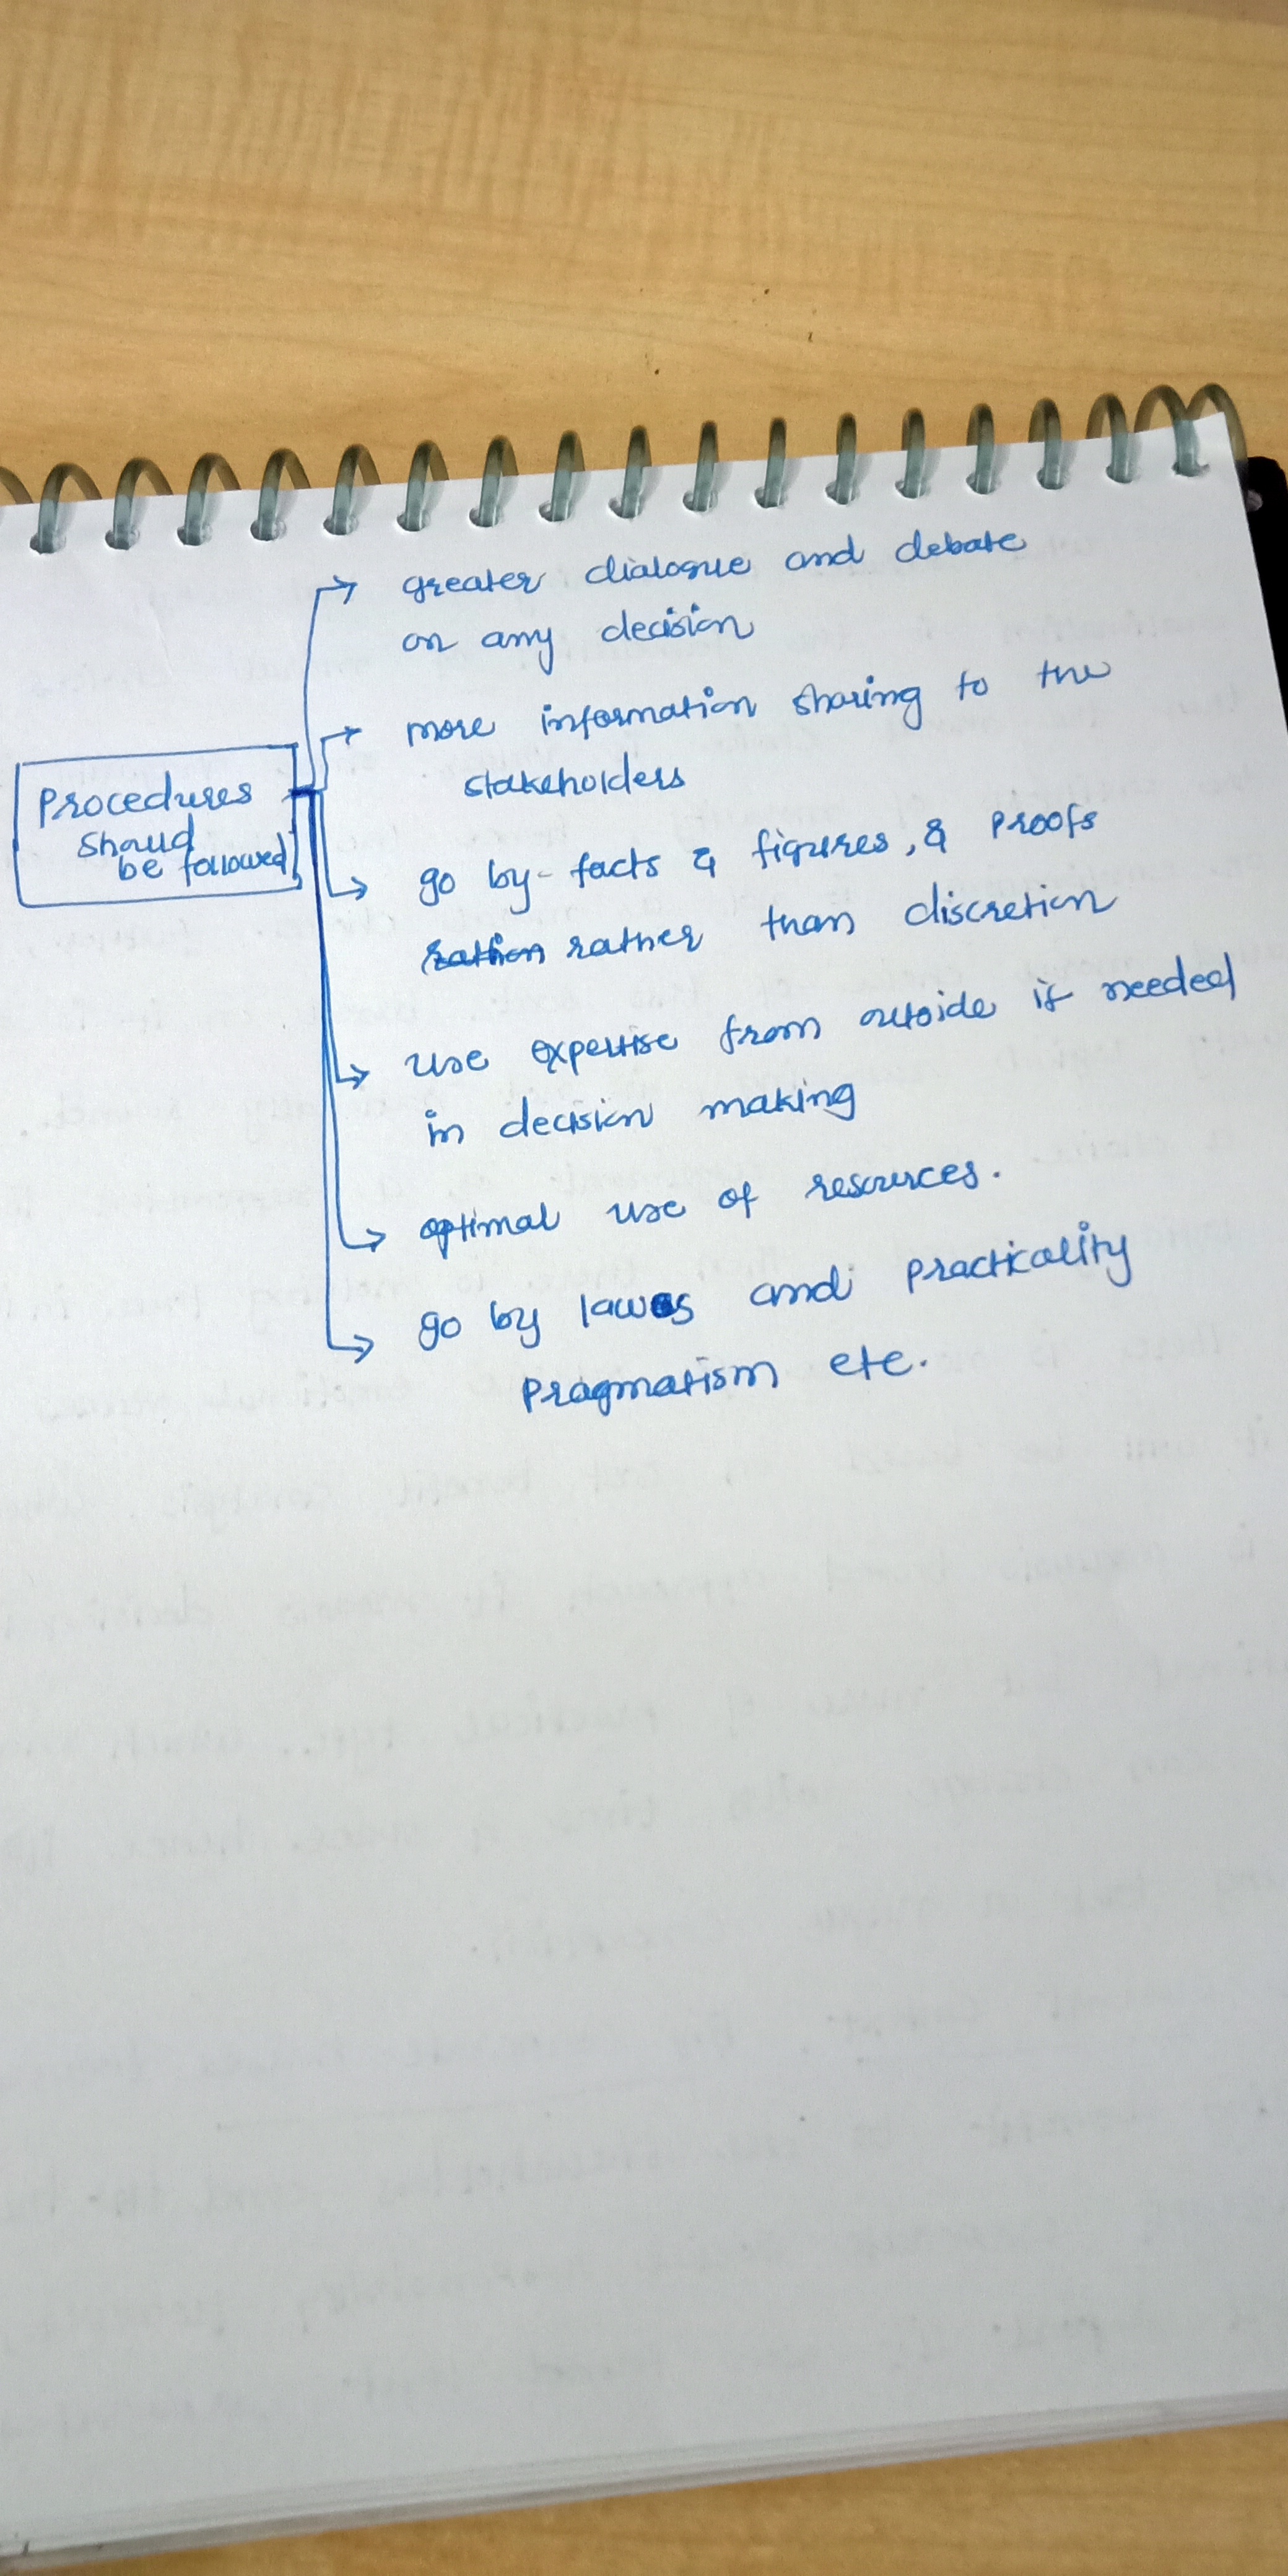 greater dialogue and debate
on any decision
more information sharing to the
stakeholders
Procedures
should
be followed
go by facts & figures, & proofs
rather than discretion
use expertise from outside if needed
in decision making
optimal use of resources.
go by laws and practicality
pragmatism etc.